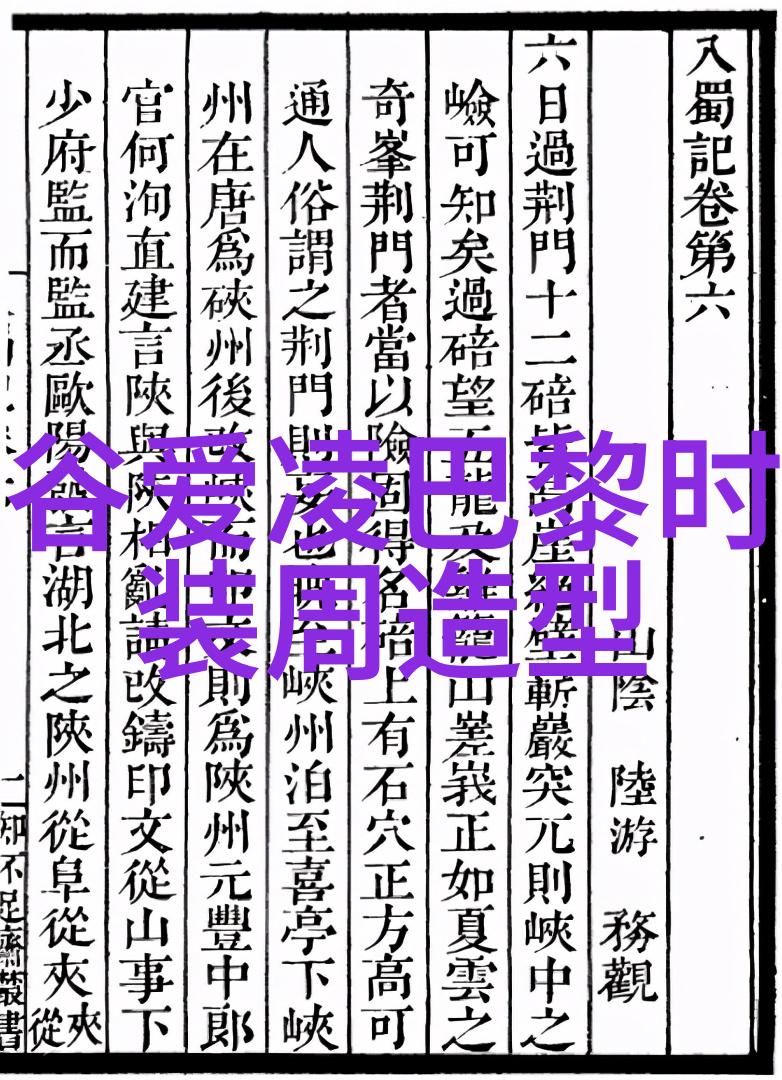 入蜀記卷第六
山陰 陸游 務觀
六日過荆門十二碚皆高崖絶壁嶄巖突兀則峽中之
嶮可知矣過碚望五龍及雞籠山嵳峩正如夏雲之
奇峯荆門者當以險固得名碚上有石穴正方高可
通人俗謂之荆門則妄也晚至峽州泊至喜亭下峽
州在唐爲硤州後改峽而印文則爲陜州元豐中郎
官何洵直建言陝與陜相亂請改鑄印文從山事下
少府監而監丞歐陽發言湖北之陜州從阜從夾夾從
二 知不足齋叢書
谷爱凌巴黎时
装周造型